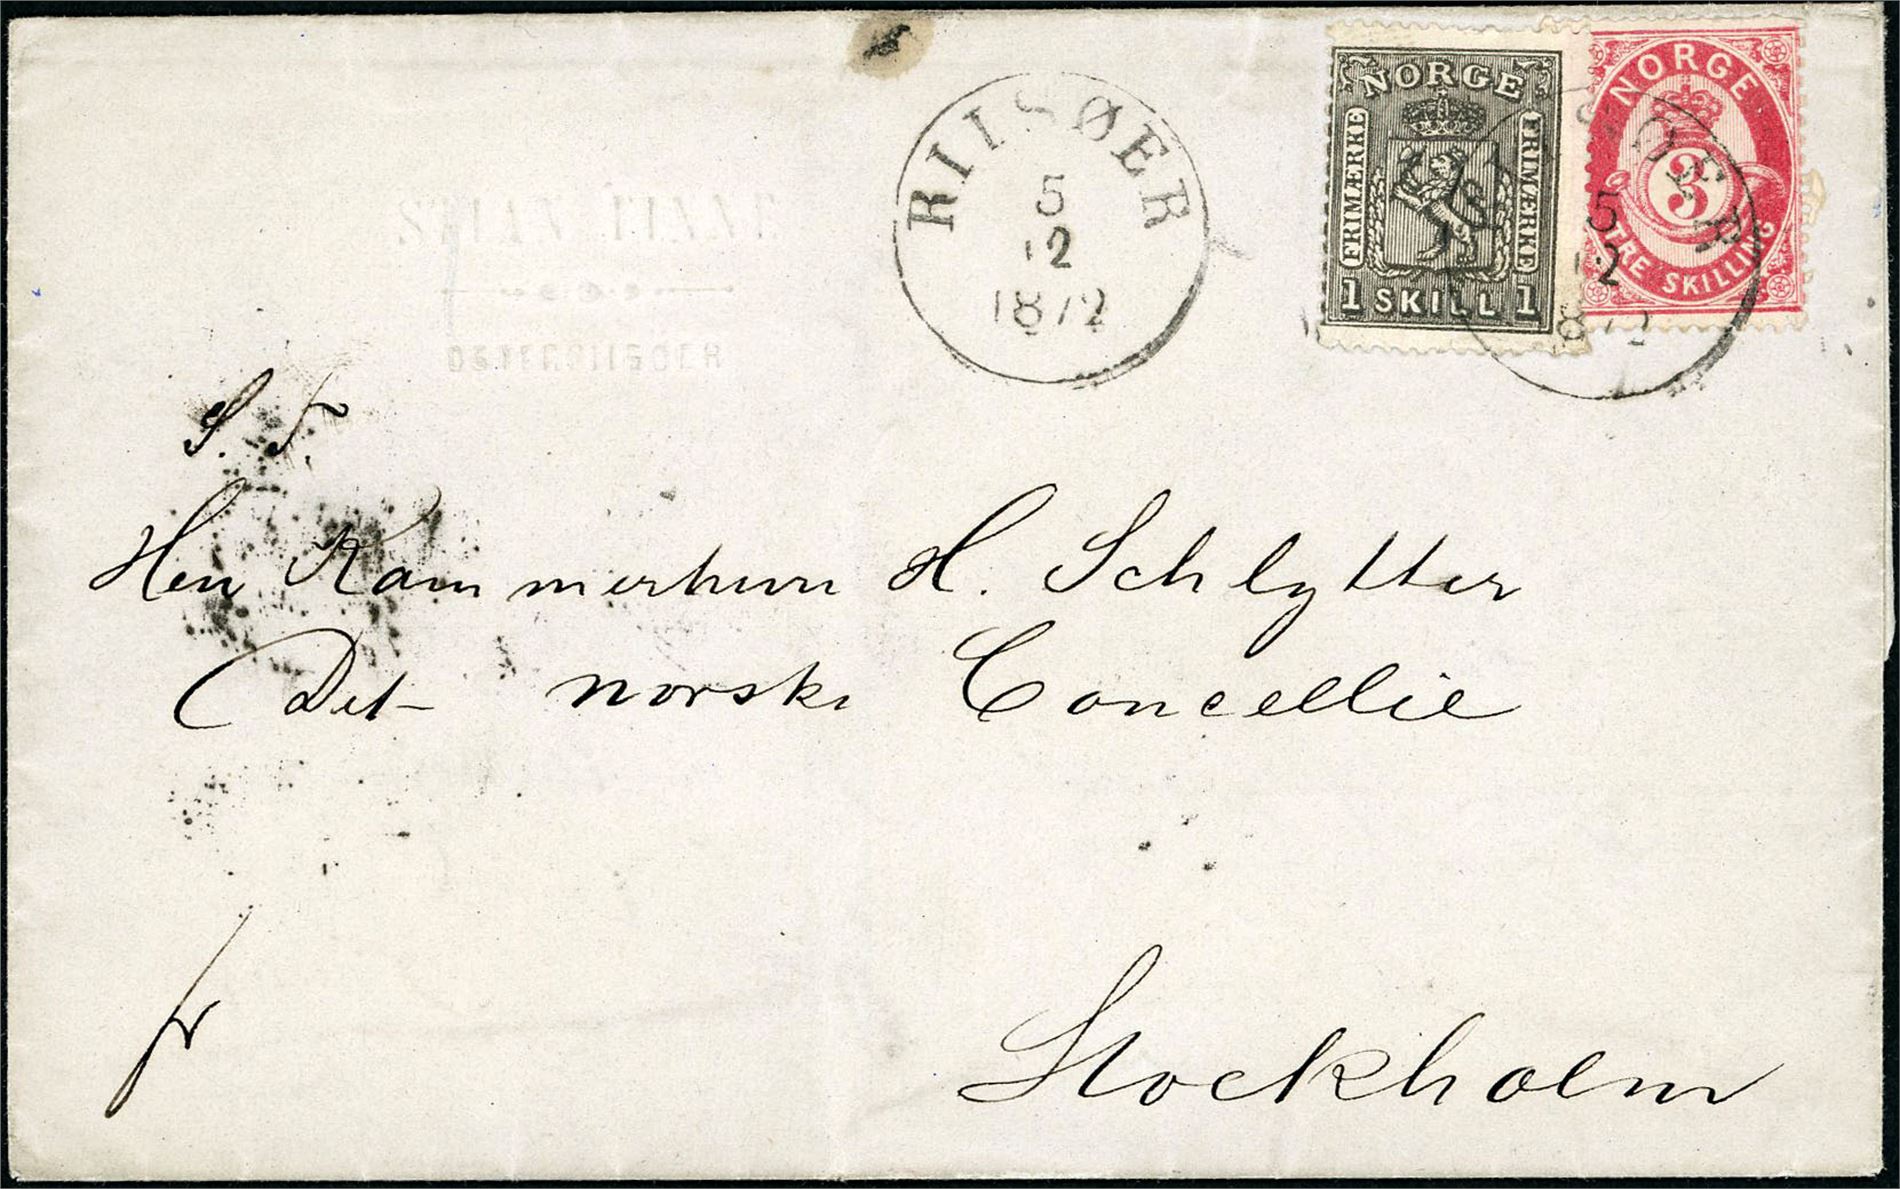 RIISØER
5
12
1872
NORGE
FRIMÆRKE
FRIMÆRKE
1 SKILL 1
NORGE
3
TRE SKILLING
ØER
5
12
1872
STIAN FINNE
OSTERRIISOER
S. T.
Herr Kammerherre H. Schlytter
Det norske Cancellie
fr
Stockholm